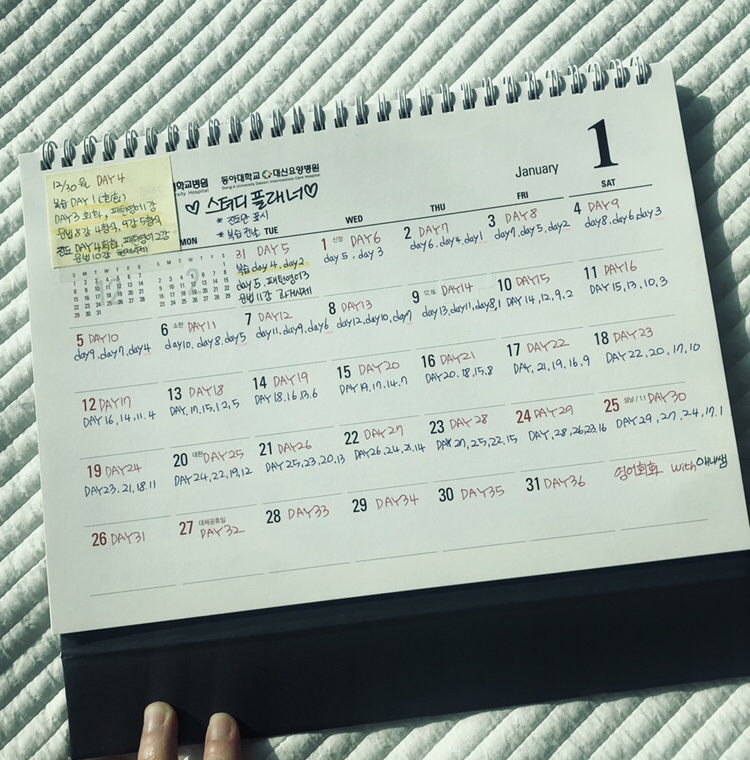 12/30 월 DAY4
복습 DAY 1 (전날)
DAY3 회화, 패턴영어1강
문법 8강 4형식, 9강 5형식
진도 DAY4회화, 패턴영어2강
문법 10강
동아대학교 대신요양병원
Dong-A University Daesin Intermediate Care Hospital
♡ 스터디 플래너 ♡
* 진도만 표시
* 복습 전날
January
1
MON TUE WED THU FRI SAT
31 DAY 5
복습 day 4, day2
day 5, 패턴영어3
문법 11강 과거시제
1 신정 DAY6
day 5, day 3
2 DAY7
day6, day4, day1
3 DAY8
day7, day5, day2
4 DAY9
day8, day6, day3
5 DAY10
day9, day7, day4
6 소한 DAY11
day10, day8, day5
7 DAY12
day11, day9, day6
8 DAY13
day12, day10, day7
9 DAY14
day13, day11, day8, 1
10 DAY15
DAY 14, 12, 9, 2
11 DAY16
DAY 15, 13, 10, 3
12 DAY17
DAY 16, 14, 11, 4
13 DAY18
DAY, 17, 15, 12, 5
14 DAY19
DAY 18, 16, 13, 6
15 DAY20
DAY 19, 17, 14, 7
16 DAY21
DAY20, 18, 15, 8
17 DAY22
DAY, 21, 19, 16, 9
18 DAY23
DAY 22, 20, 17, 10
19 DAY24
DAY23, 21, 18, 11
20 대한 DAY25
DAY24, 22, 19, 12
21 DAY26
DAY 25, 23, 20, 13
22 DAY27
DAY26, 24, 21, 14
23 DAY 28
DAY 27, 25, 22, 15
24 DAY29
DAY, 28, 26, 23, 16
25 설날 / 1.1 DAY30
DAY 29, 27, 24, 17, 1
26 DAY31
27 대체공휴일 DAY32
28 DAY33
29 DAY34
30 DAY35
31 DAY36
영어회화 with 애나쌤